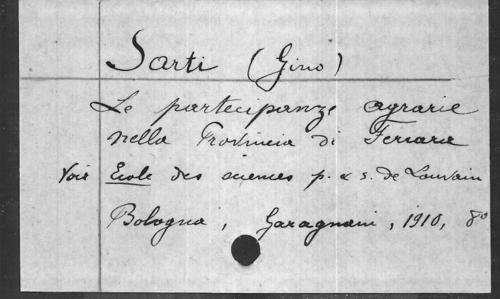 Sarti (Gino)
Le partecipanze agrarie
nella Provincia di Ferrara
Voir Ecole des sciences p. & s. de Louvain
Bologna, Garagnani, 1910, 8º